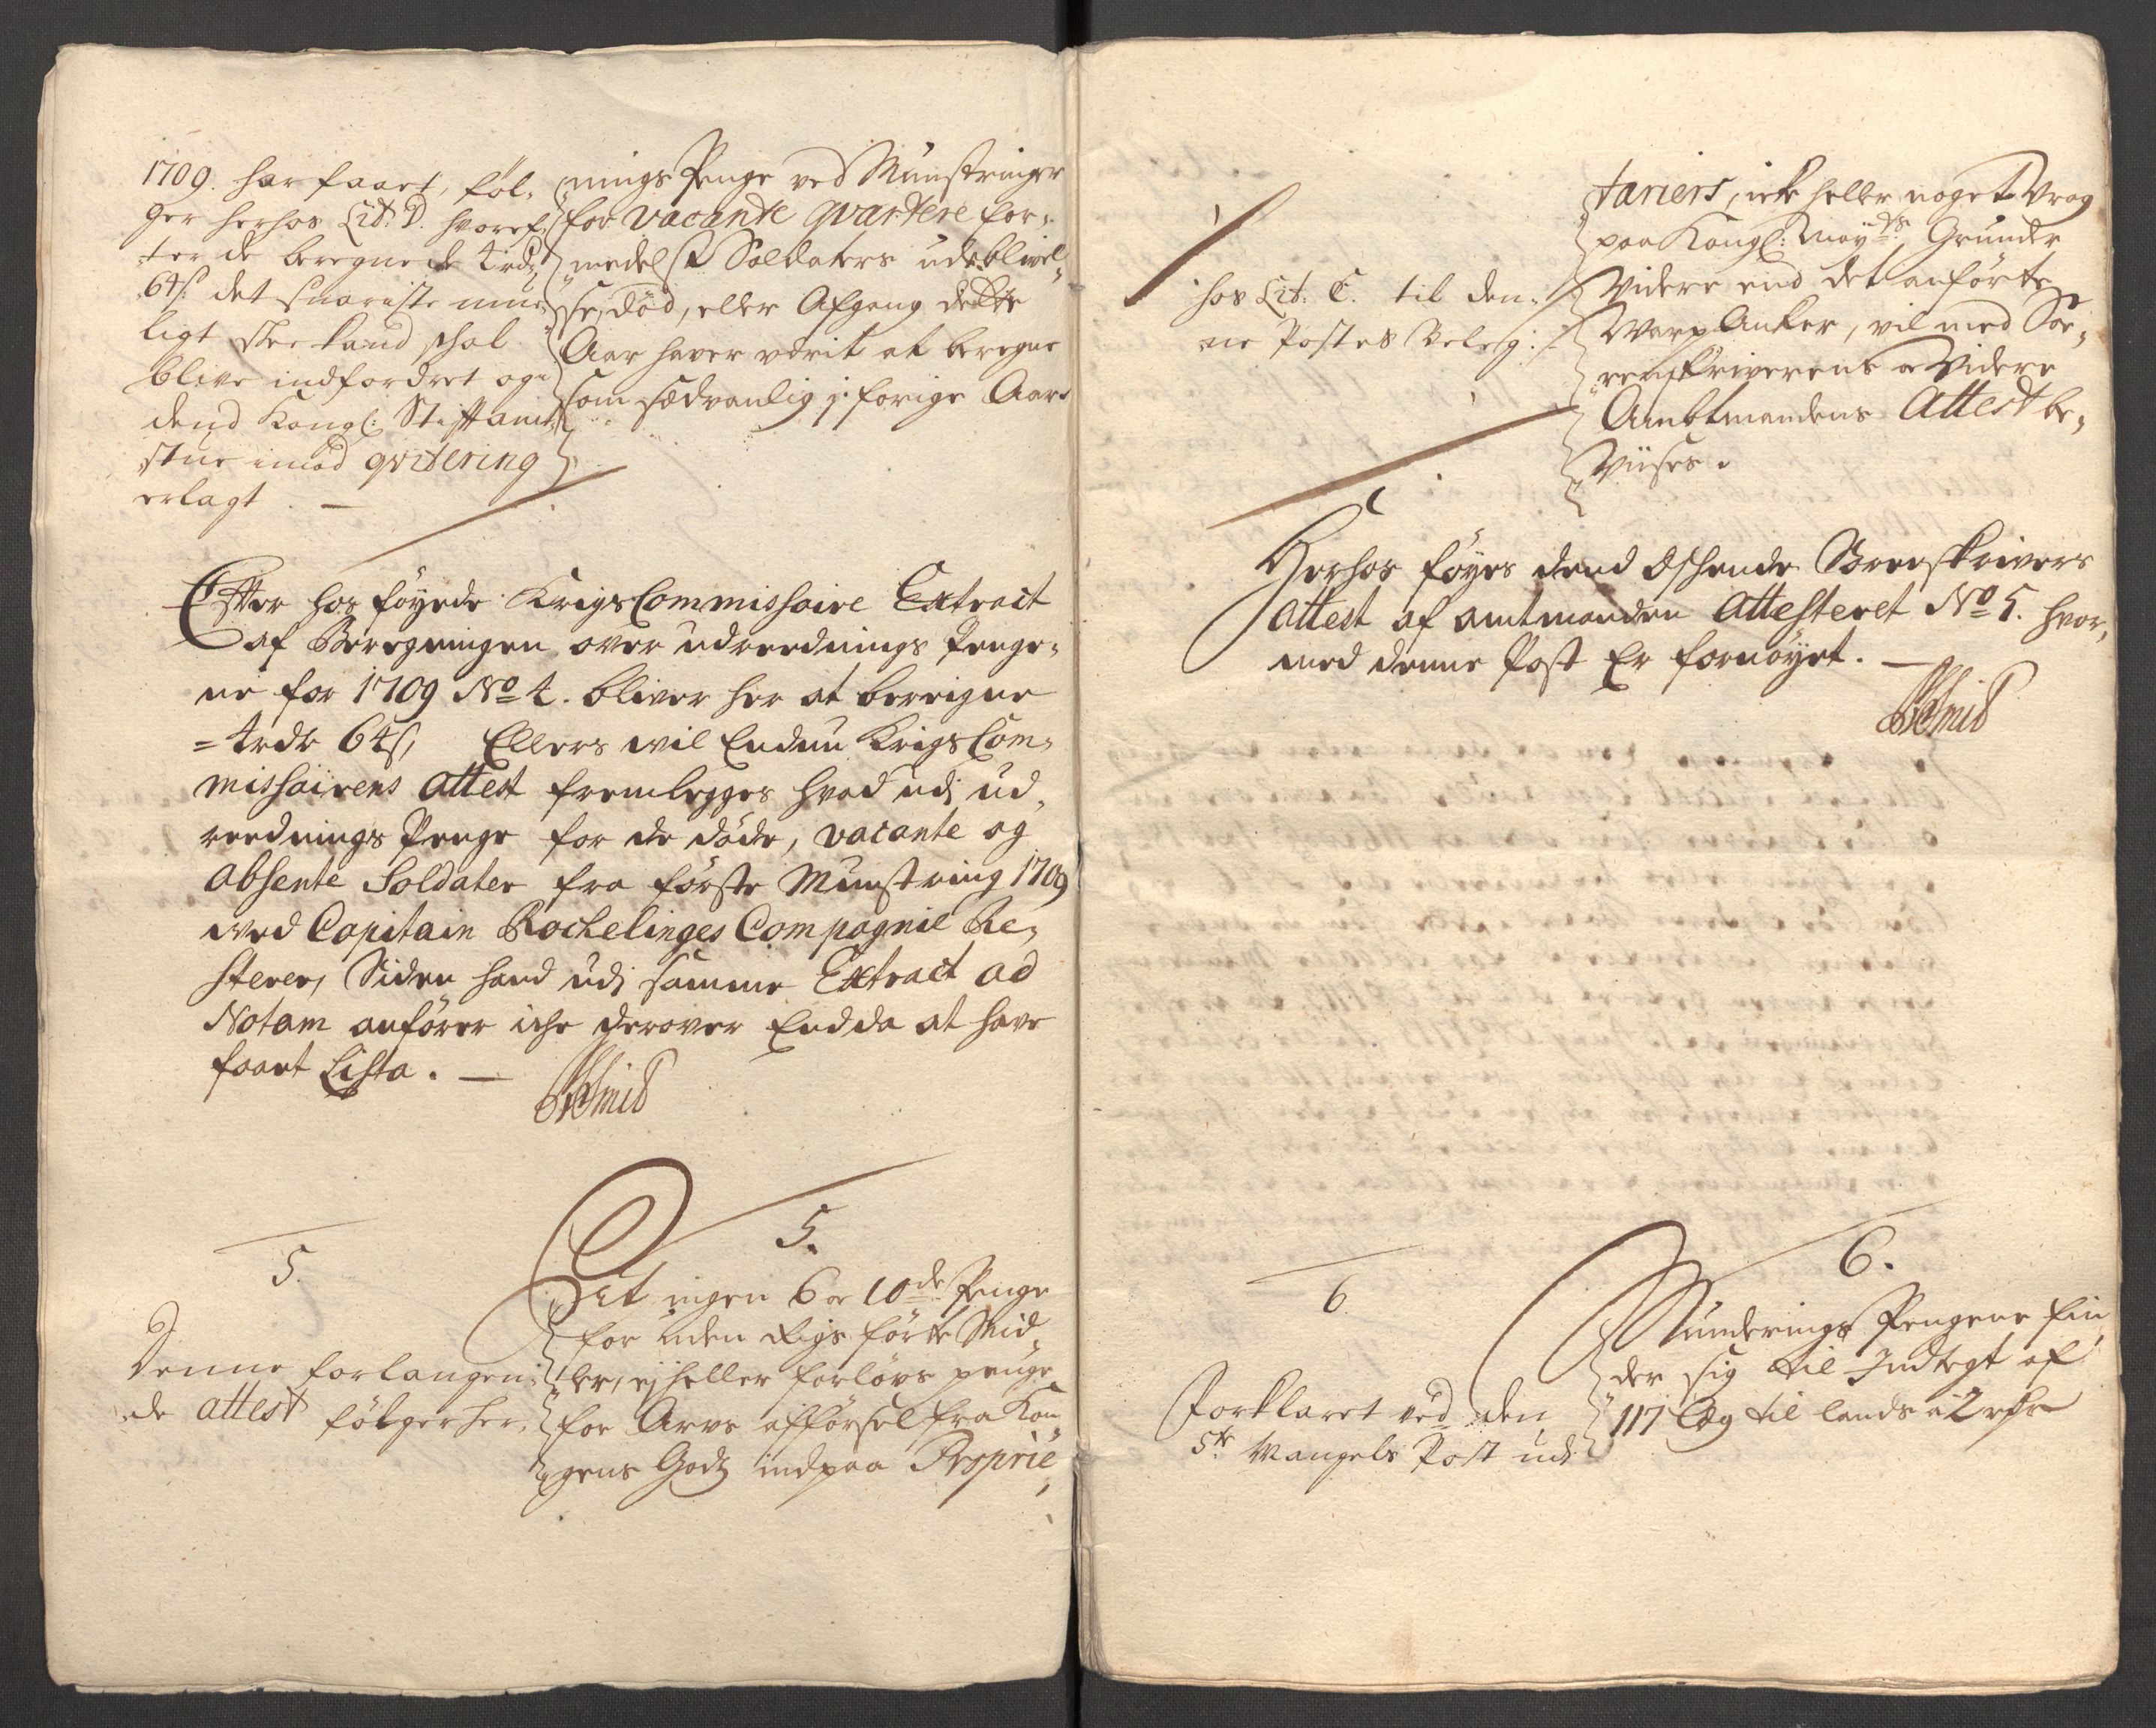 1709. har faaet, føl-
ger herhos Lit: D. hvoref-
ter de beregnede 4 rdr
64 s: det snariste mue-
ligt skee kand, schal
blive indfordret og
dend Kongl: Stiftamt-
stue imod qvitering
erlagt. —
nings Penge ved Munstringer
for vacante qvartere for-
medelst Soldaters udeblivel-
se, død, eller Afgang dette
Aar haver værit at beregne
som sædvanlig j forige Aar
Efter hos føyede KrigsCommissaire Extract
af Beregningen over udreednings Penge-
ne for 1709 No 4. bliver her at bereigne
= 4 rdr 64 s, Ellers vil Endnu KrigsCom-
missairens attest fremlegges hvad udj ud-
reednings Penge for de døde, vacante og
absente Soldater fra første Munstring 1709
ved Capitain Rochelinges Compagnie Re-
sterer, Siden hand udj samme Extract ad
Notam anfører iche derover Endda at have
faaet Lista. —
Smid
5.
Denne forlangen-
de attest følger her-
5.
At ingen 6 or 10de Penge
for uden Rigs førte Mid-
ler, ej heller forlovs penge
for Arve afførsel fra Kon-
gens Godtz ind paa Proprie-
hos Lit: E. til den-
ne Postes Beleg:
tariers, ick heller noget Vrag
paa Kongl: Mayts: Grunder
Videre end det anførte
Warp Anker, vil med Sor-
renskriverens or Videre
Ambtmandens Attest be-
viises.
Herhos føyes dend Ochende Sorenskrivers
attest af amtmanden attesteret No 5. hvor-
med denne Post Er fornøyet. —
Smid
6.
Forklaret ved den
5te Mangels Post udj
6.
Munderings Pengene fin-
der sig til Indtegt af
117 Læg til lands à 2 rdr